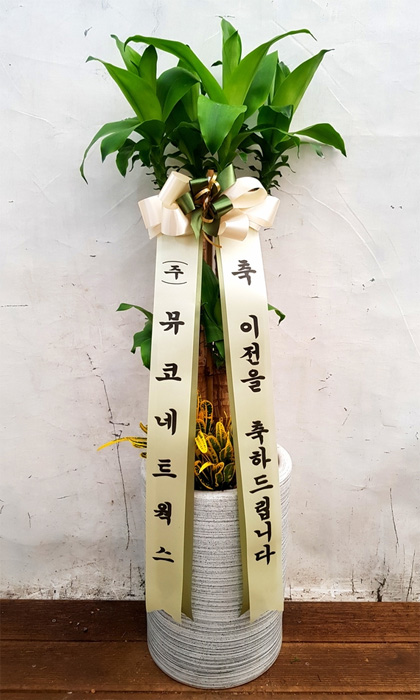 (주) 뮤코네트웍스
축 이전을 축하드립니다